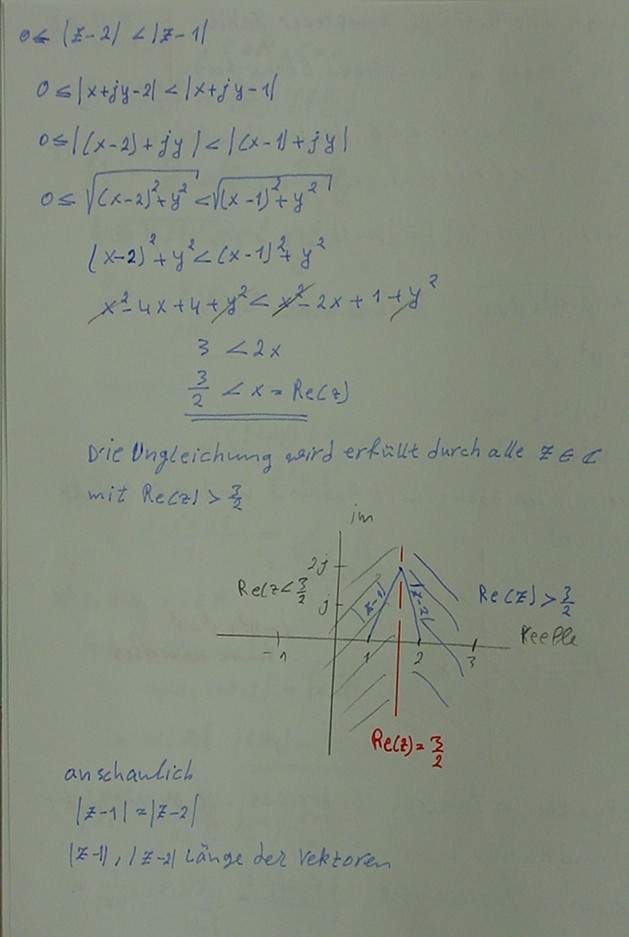 0 ≤ |z-2| < |z-1|
0 ≤ |x+jy-2| < |x+jy-1|
0 ≤ |(x-2)+jy| < |(x-1)+jy|
0 ≤ √((x-2)²+y²) < √((x-1)²+y²)
(x-2)²+y² < (x-1)²+y²
x²-4x+4+y² < x²-2x+1+y²
3 < 2x
3/2 < x = Re(z)
Die Ungleichung wird erfüllt durch alle z ∈ ℂ
mit Re(z) > 3/2
im
2j
Re(z < 3/2
j
|z-1|
|z-2|
Re(z) > 3/2
Reelle
-1 1 2 3
Re(z) = 3/2
anschaulich
|z-1| = |z-2|
|z-1|, |z-2| Länge der Vektoren